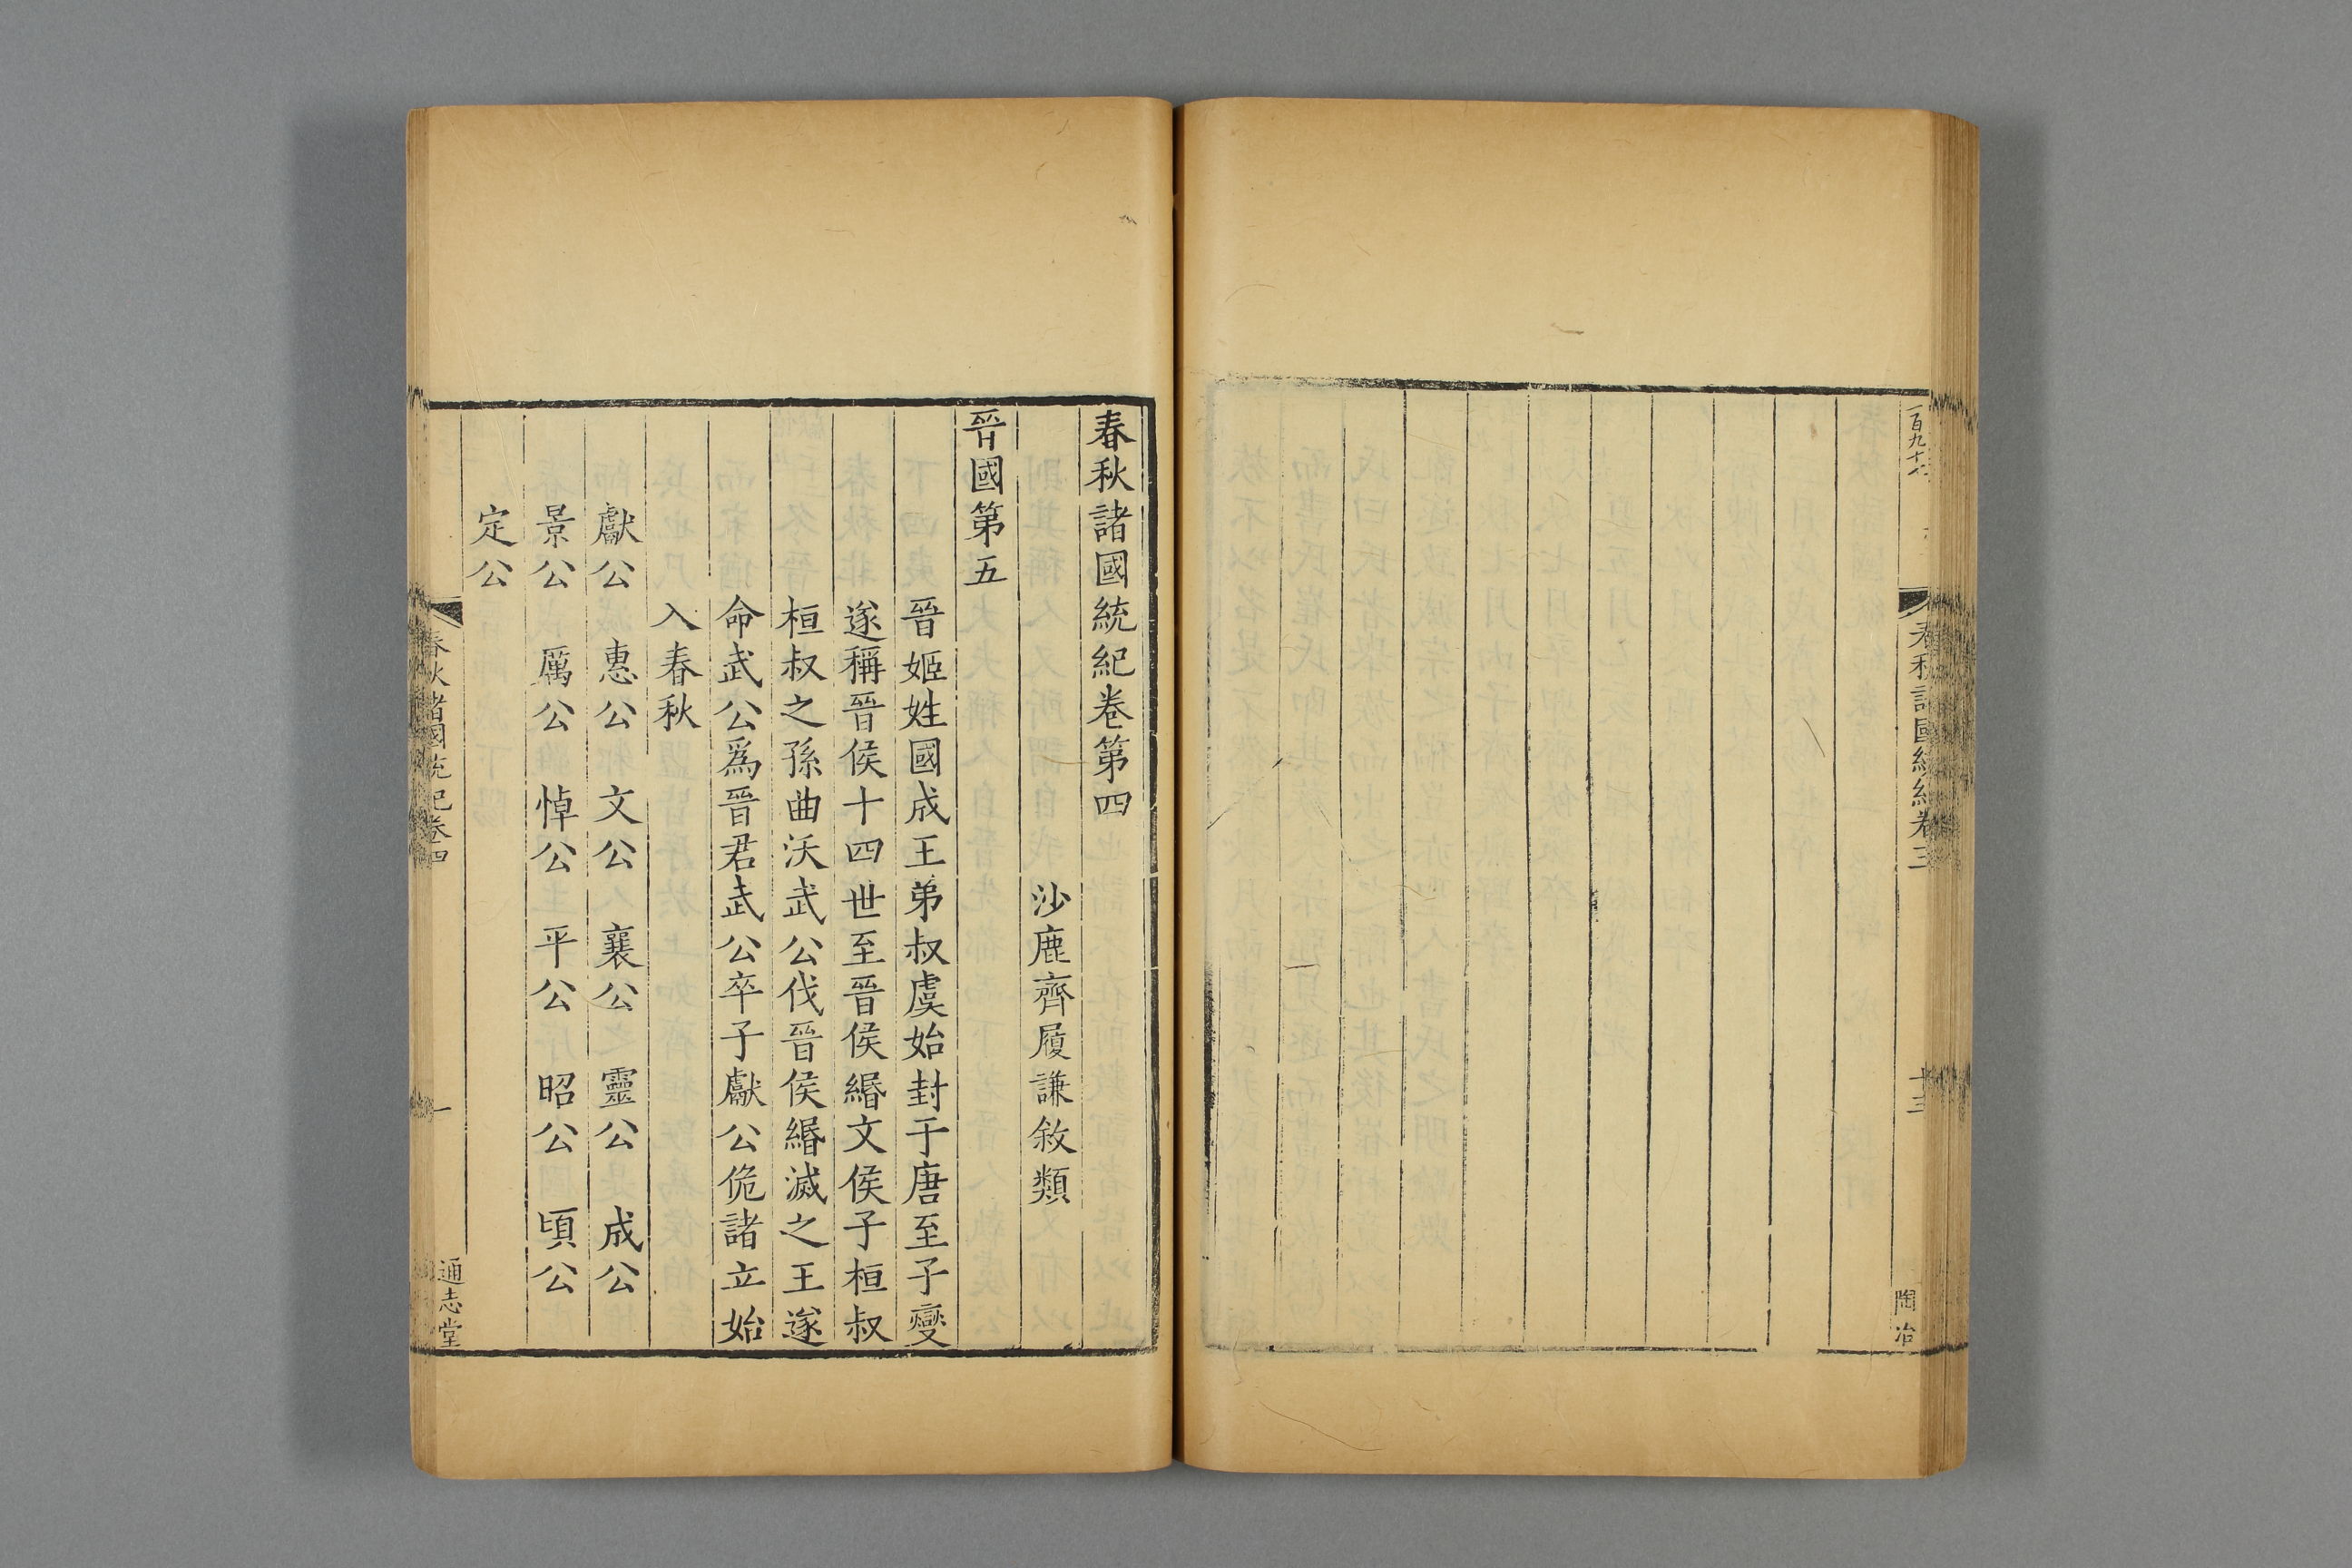 百九十
春秋諸國統紀卷三
十三
陶冶
春秋諸國統紀卷第四
沙鹿齊履謙敘類
晉國第五
晉姬姓國成王弟叔虞始封于唐至子燮
遂稱晉侯十四世至晉侯緡文侯子桓叔
桓叔之孫曲沃武公伐晉侯緡滅之王遂
命武公爲晉君武公卒子獻公佹諸立始
入春秋
獻公 惠公 文公 襄公 靈公 成公
景公 厲公 悼公 平公 昭公 頃公
定公
春秋諸國統紀卷四
一
通志堂